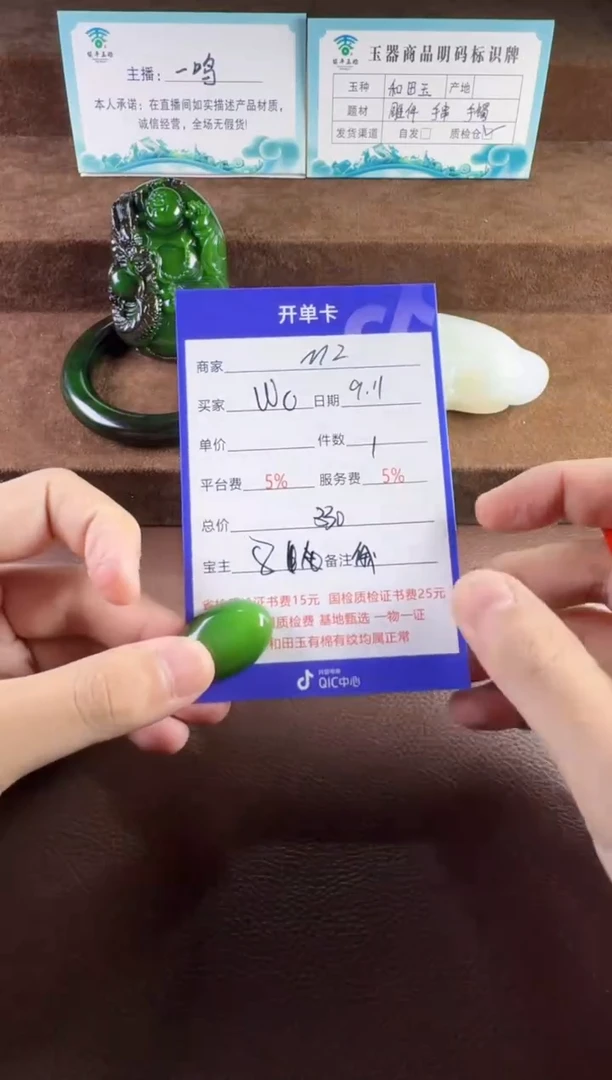 主播：一鸣
本人承诺：在直播间如实描述产品材质，
诚信经营，全场无假货！
玉器商品明码标识牌
玉种 和田玉 产地
题材 雕件 手串 手镯
发货渠道 自发□ 质检仓☑
开单卡
商家 M2
买家 WO 日期 9.11
单价 件数 1
平台费 5% 服务费 5%
总价 330
宝主 备注
证书费15元 国检质检证书费25元
质检费 基地甄选 一物一证
和田玉有棉有纹均属正常
QIC中心